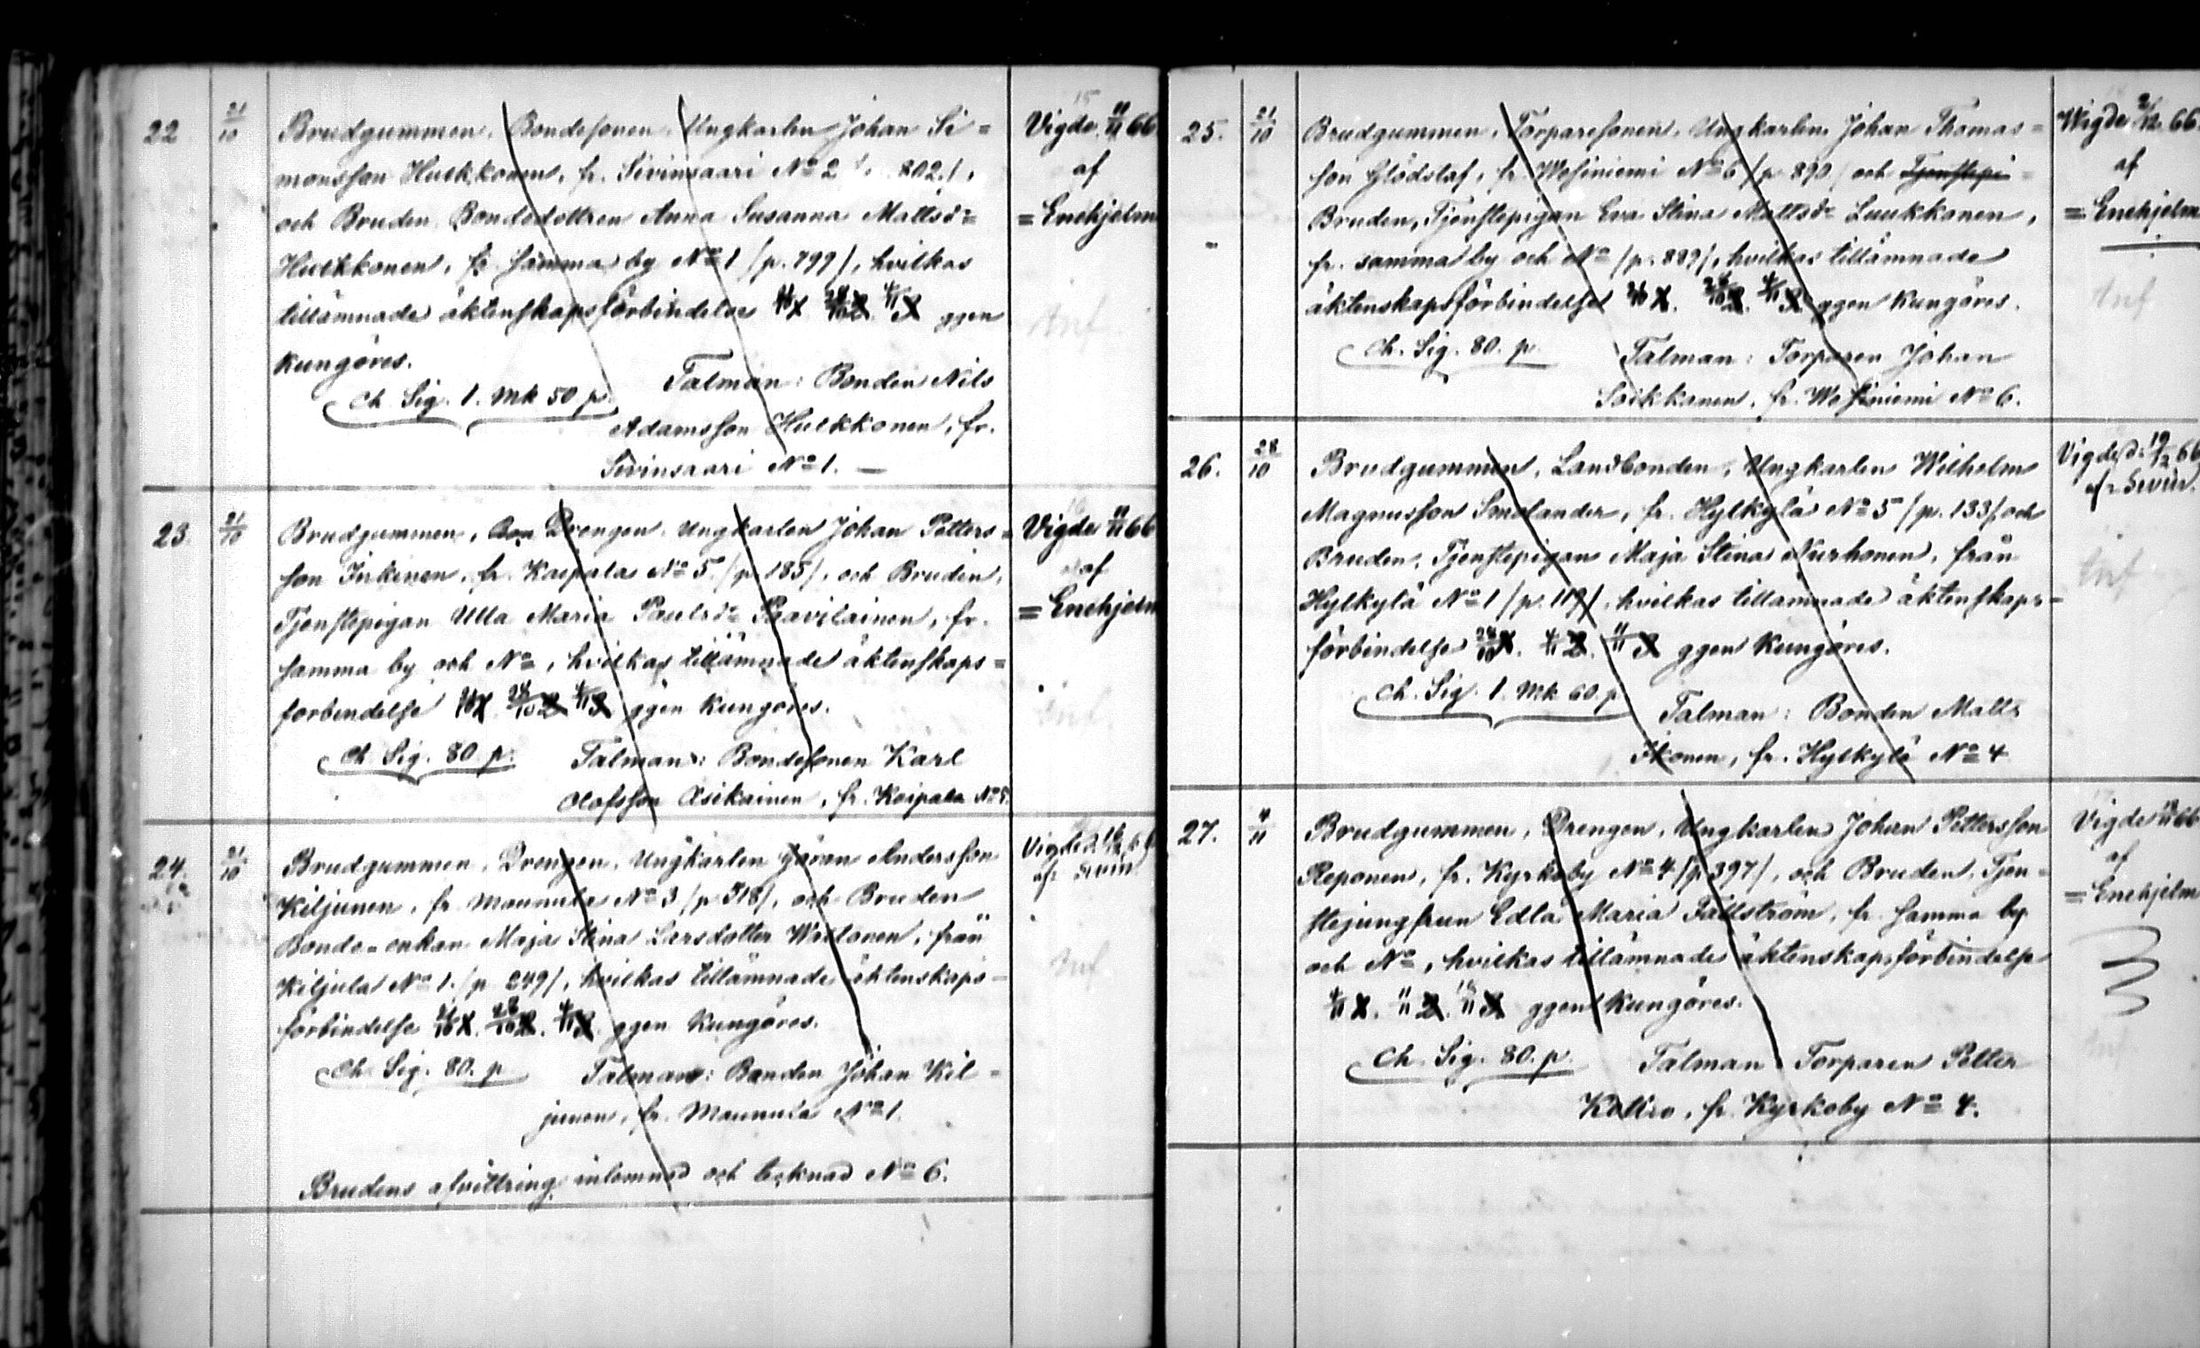 22 21/10 Brudgummen, Bondesonen, Ungkarlen Johan Si= Vigde 11/11 66
monsson Hulkkonen, fr. Sivinsaari No 2 802/, af
och Bruden, Bondedottren Anna Susanna Mattsdr = Enehjelm
Hulkkonen, fr. samma by No 1 /p. 799/, hvilkas
tillämnade äktenskapsförbindelse 21/10 1 28/10 2 4/11 3 ggen
kungöres.
Ch. Sig. 1. Mk 50 p. Talman: Bonden Nils
Adamsson Hulkkonen, fr.
Sivinsaari No 1. —
23. 21/10 Brudgummen, Bon Drengen, Ungkarlen Johan Petters= Vigde 11/11 66
son Inkinen, fr. Koipala No 5. /p. 185/, och Bruden, af
Tjenstepigan Ulla Maria Paulsdr Paavilainen, fr. = Enehjelm
samma by och No, hvilkas tillämnade äktenskaps=
förbindelse 21/10 1. 28/10 2 4/11 3 ggen kungöres.
Ch. Sig. 80. p. Talman: Bondesonen Karl
Olofsson Asikainen, fr. Koipala No 5.
24. 21/10 Brudgummen, Drengen, Ungkarlen Göran Andersson Vigde d.
Kiljunen, fr. Maunula No 3 /p. 318/, och Bruden af
Bonde-enkan Maja Stina Larsdotter Wattanen, från
Kiljula No 1. /p. 249/, hvilkas tillämnade äktenskaps-
förbindelse 21/10 1. 28/10 2. 4/11 3. ggen kungöres.
Ch. Sig. 80. p. Talman: Bonden Johan Kil=
junen, fr. Maunula No 1.
Brudens afvittring inlemnad och tecknad No 6.
25. 21/10 Brudgummen, Torparesonen, Ungkarlen Johan Thomas= Wigde 2/12 66.
son Glödstaf, fr. Wosiniemi No 6 /p. 890/ och Tjenstepi= af
Bruden, Tjenstepigan Eva Stina Mattsdr Luukkonen, = Enehjelm
fr. samma by och No /p. 889/, hvilkas tillämnade
äktenskapsförbindelse 21/10 1. 28/10 2. 4/11 3 ggen kungöres.
Ch. Sig. 80. p. Talman: Torparen Johan
Soikkanen, fr. Wosiniemi No 6.
26. 28/10 Brudgummen, Landbonden, Ungkarlen Wilhelm Vigde d. 66
Magnusson Smolander, fr. Hylkylä No 5 /p. 133/ och af
Bruden, Tjenstepigan Maja Stina Nurhonen, från
Hylkylä No 1 /p. 119/, hvilkas tillämnade äktenskaps=
förbindelse 28/10 1. 4/11 2. 11/11 3 ggen kungöres.
Ch. Sig. 1. Mk 60. p. Talman: Bonden Matts
Ikonen, fr. Hylkylä No 4
27. 4/11 Brudgummen, Drengen, Ungkarlen Johan Pettersson Vigde 66
Reponen, fr. Kyrkoby No 4 /p. 397/, och Bruden, Tjen= af
stejungfrun Edla Maria Fällström, fr. samma by = Enehjelm
och No, hvilkas tillämnade äktenskapsförbindelse
4/11 1. 11/11 2. 18/11 3 ggen kungöres.
Ch. Sig. 80. p. Talman Torparen Petter
fr. Kyrkoby No 4.